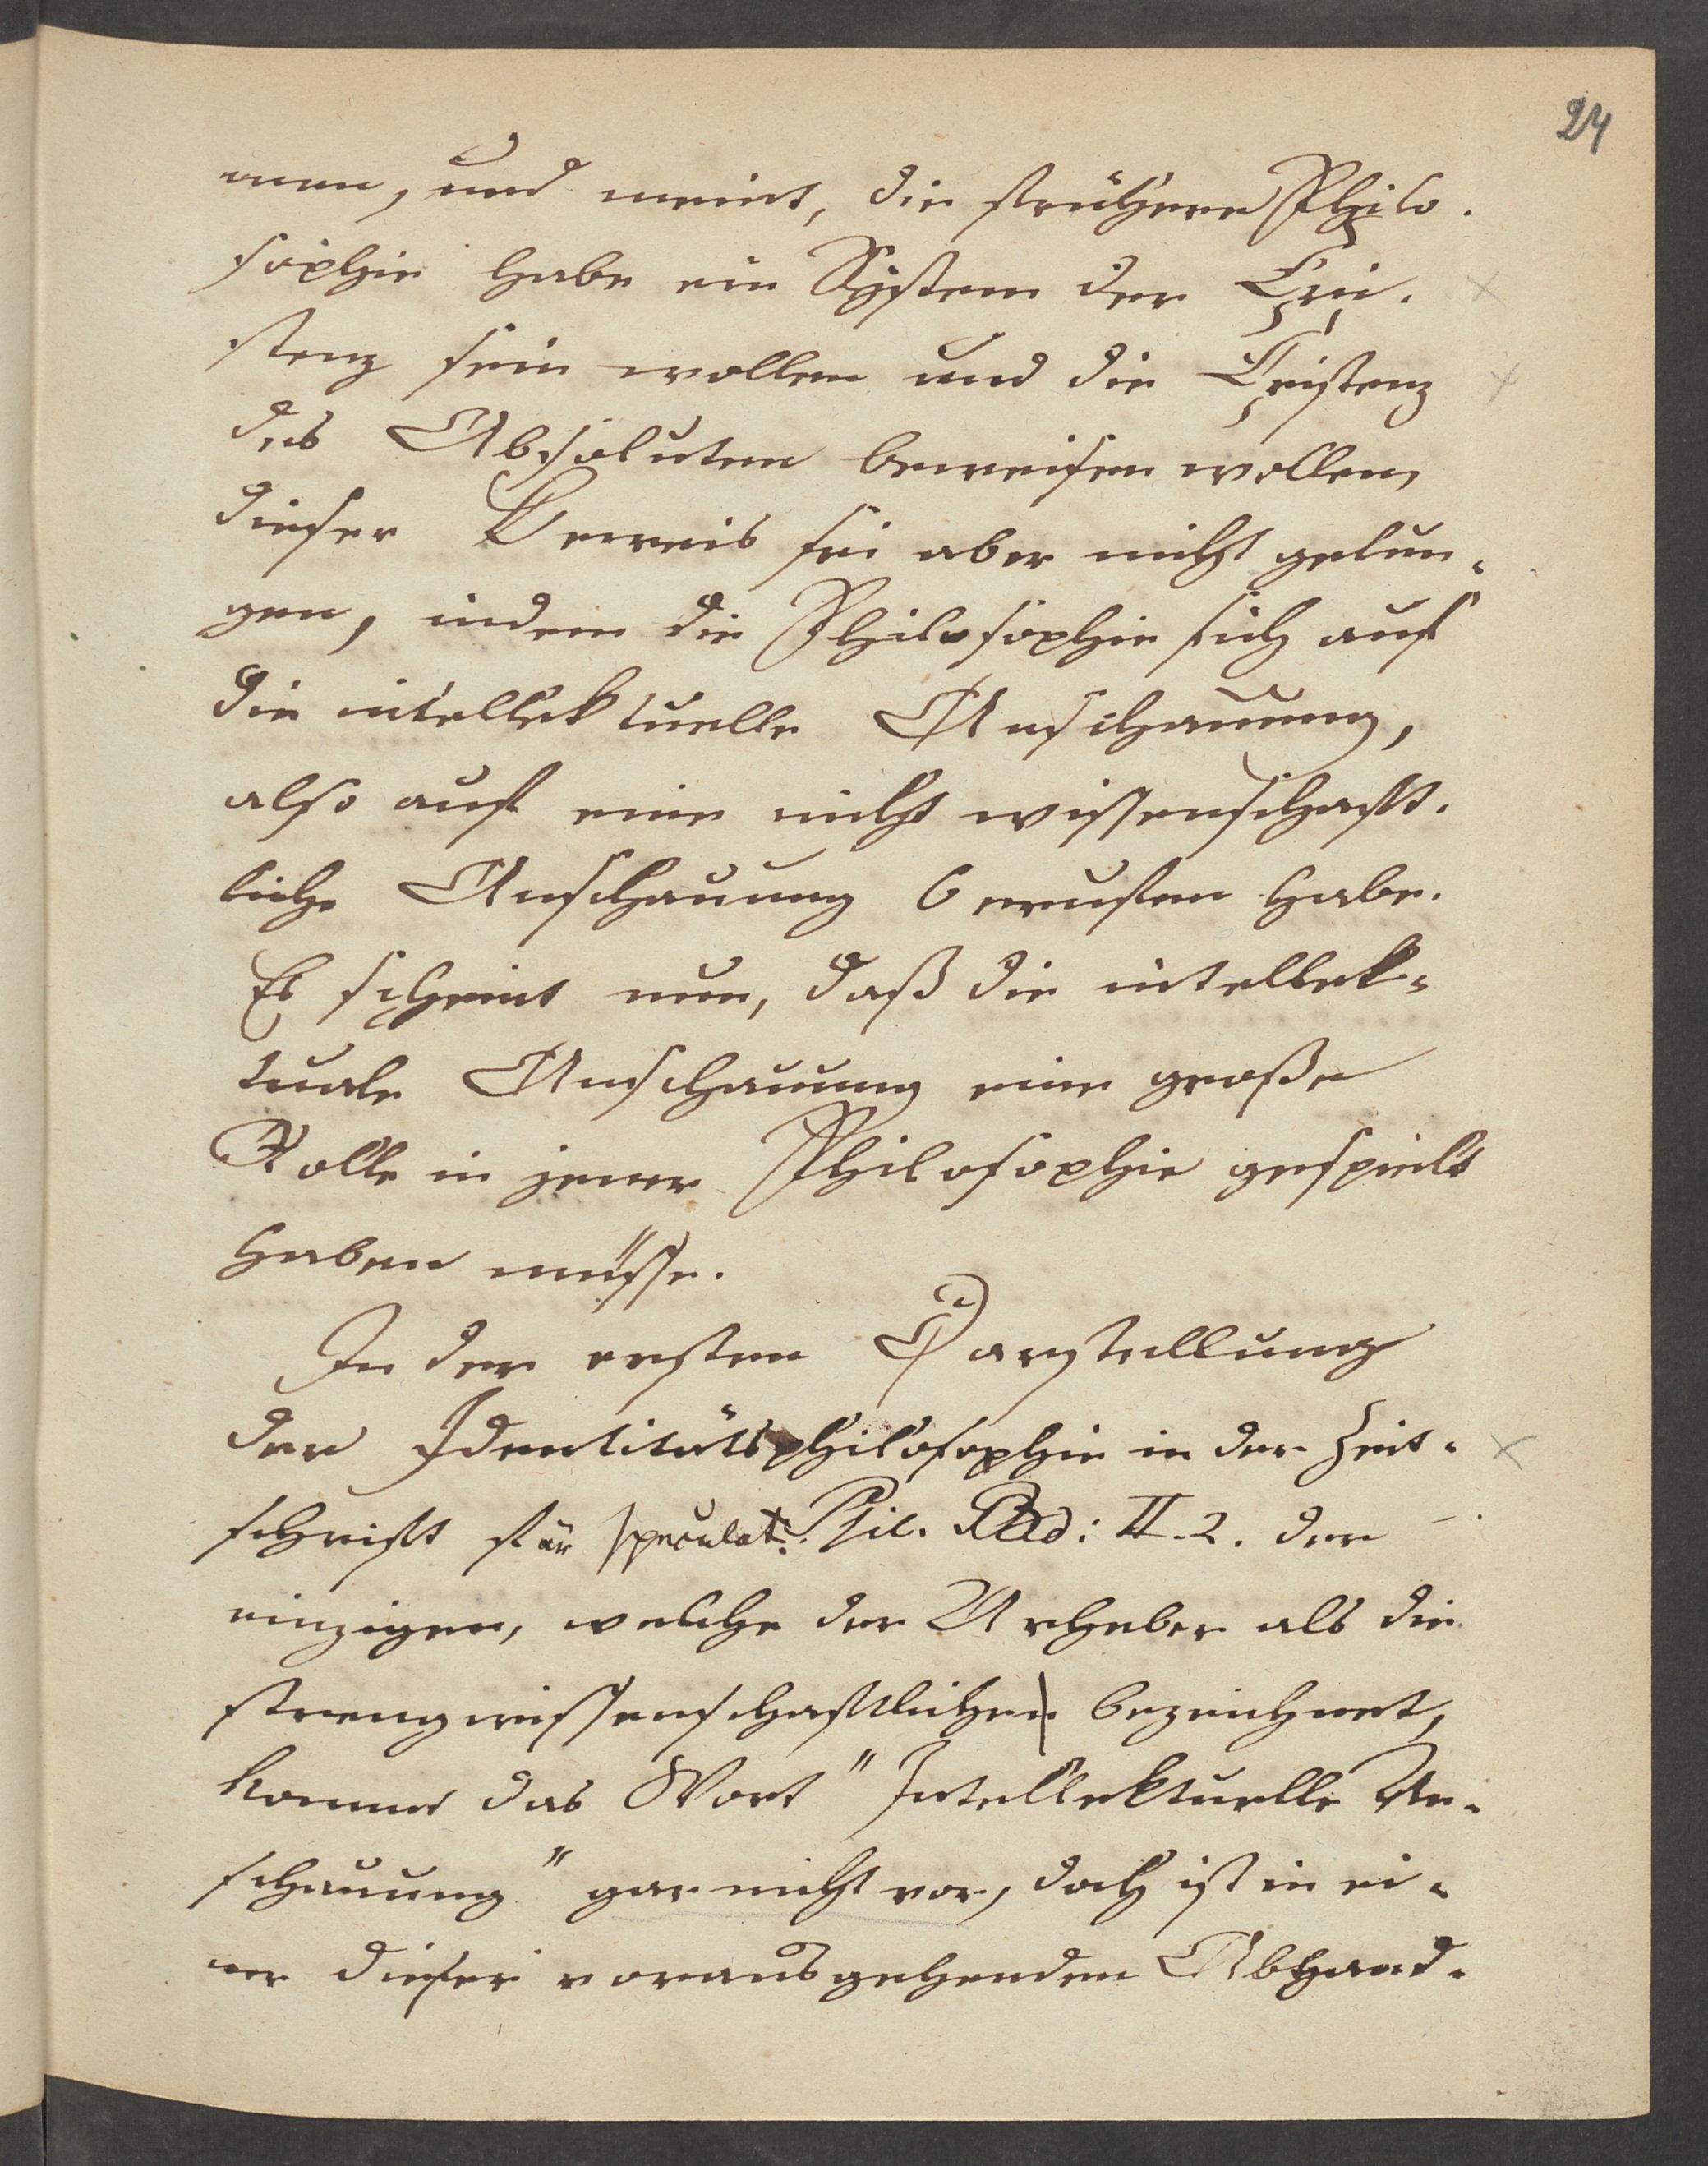 24
men, und meint, die frühere Philo-
sophie habe ein System der Exi-
stenz sein wollen und die Existenz
des Absoluten beweisen wollen,
dieser Beweis sei aber nicht gelun-
gen, indem die Philosophie sich auf
die intellektuelle Anschauung,
also auf eine nicht wissenschaft-
liche Anschauung berufen habe.
Es scheint nun, daß die intellek-
tuale Anschauung eine große
Rolle in jener Philosophie gespielt
haben müsse.
In der ersten Darstellung
der Identitätsphilosophie in der Zeit-
schrift für speculat. Phil. Bd: II. 2. der
einzigen, welche der Urheber als die
streng wissenschaftliche bezeichnet,
kommt das Wort "Intellektuelle An-
schauung" gar nicht vor, doch ist in ei-
ner dieser vorausgehenden Abhand-